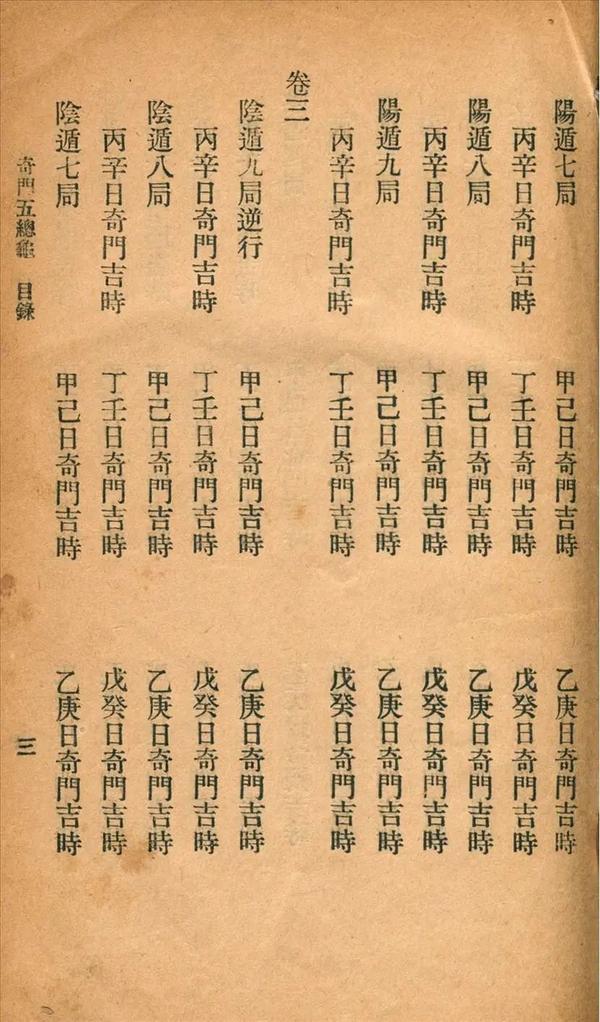 陽遁七局　甲己日奇門吉時　乙庚日奇門吉時
丙辛日奇門吉時　丁壬日奇門吉時　戊癸日奇門吉時
陽遁八局　甲己日奇門吉時　乙庚日奇門吉時
丙辛日奇門吉時　丁壬日奇門吉時　戊癸日奇門吉時
陽遁九局　甲己日奇門吉時　乙庚日奇門吉時
丙辛日奇門吉時　丁壬日奇門吉時　戊癸日奇門吉時
卷三
陰遁九局逆行　甲己日奇門吉時　乙庚日奇門吉時
丙辛日奇門吉時　丁壬日奇門吉時　戊癸日奇門吉時
陰遁八局　甲己日奇門吉時　乙庚日奇門吉時
丙辛日奇門吉時　丁壬日奇門吉時　戊癸日奇門吉時
陰遁七局　甲己日奇門吉時　乙庚日奇門吉時
奇門五總龜　目錄　三